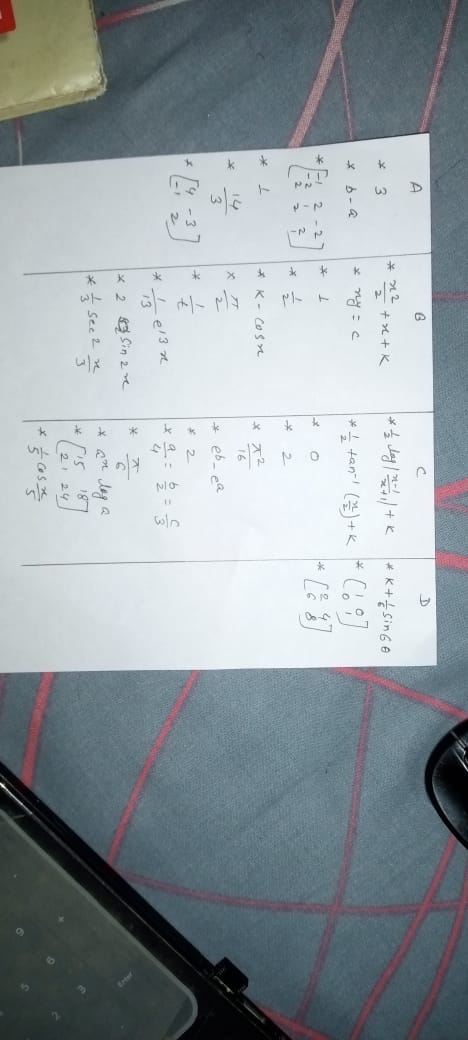 A
* 3
* b-a
* [-1 2 -2
-2 1 2 2 1 2]
* 1
* 14/3
* [4 -3
-1 2]
B
* x²/2 + x + k
* xy = c
* 1
* 1/2
* k - cosx
* π/2
* 1/t
* 1/13 e^13x
* 2 sin2x
* 1/3 sec² x/3
C
* 1/2 log|x-1/x+1| + k
* 1/2 tan⁻¹ (x/2) + k
* 0
* 2
* π²/16
* e^b - e^a
* 2
* a/4 = b/2 = c/3
* π/6
* a^x log a
* [15 18
21 24]
* 1/5 cos x/5
D
* k + 1/6 sin6θ
* [1 0
0 1]
* [2 4
6 8]
Enter
+
3
2
6
5
9